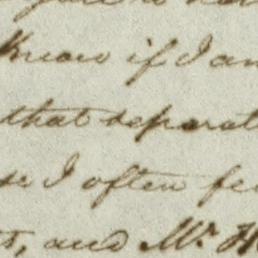 Know if I am
that separat
I often fe
and Mr. H